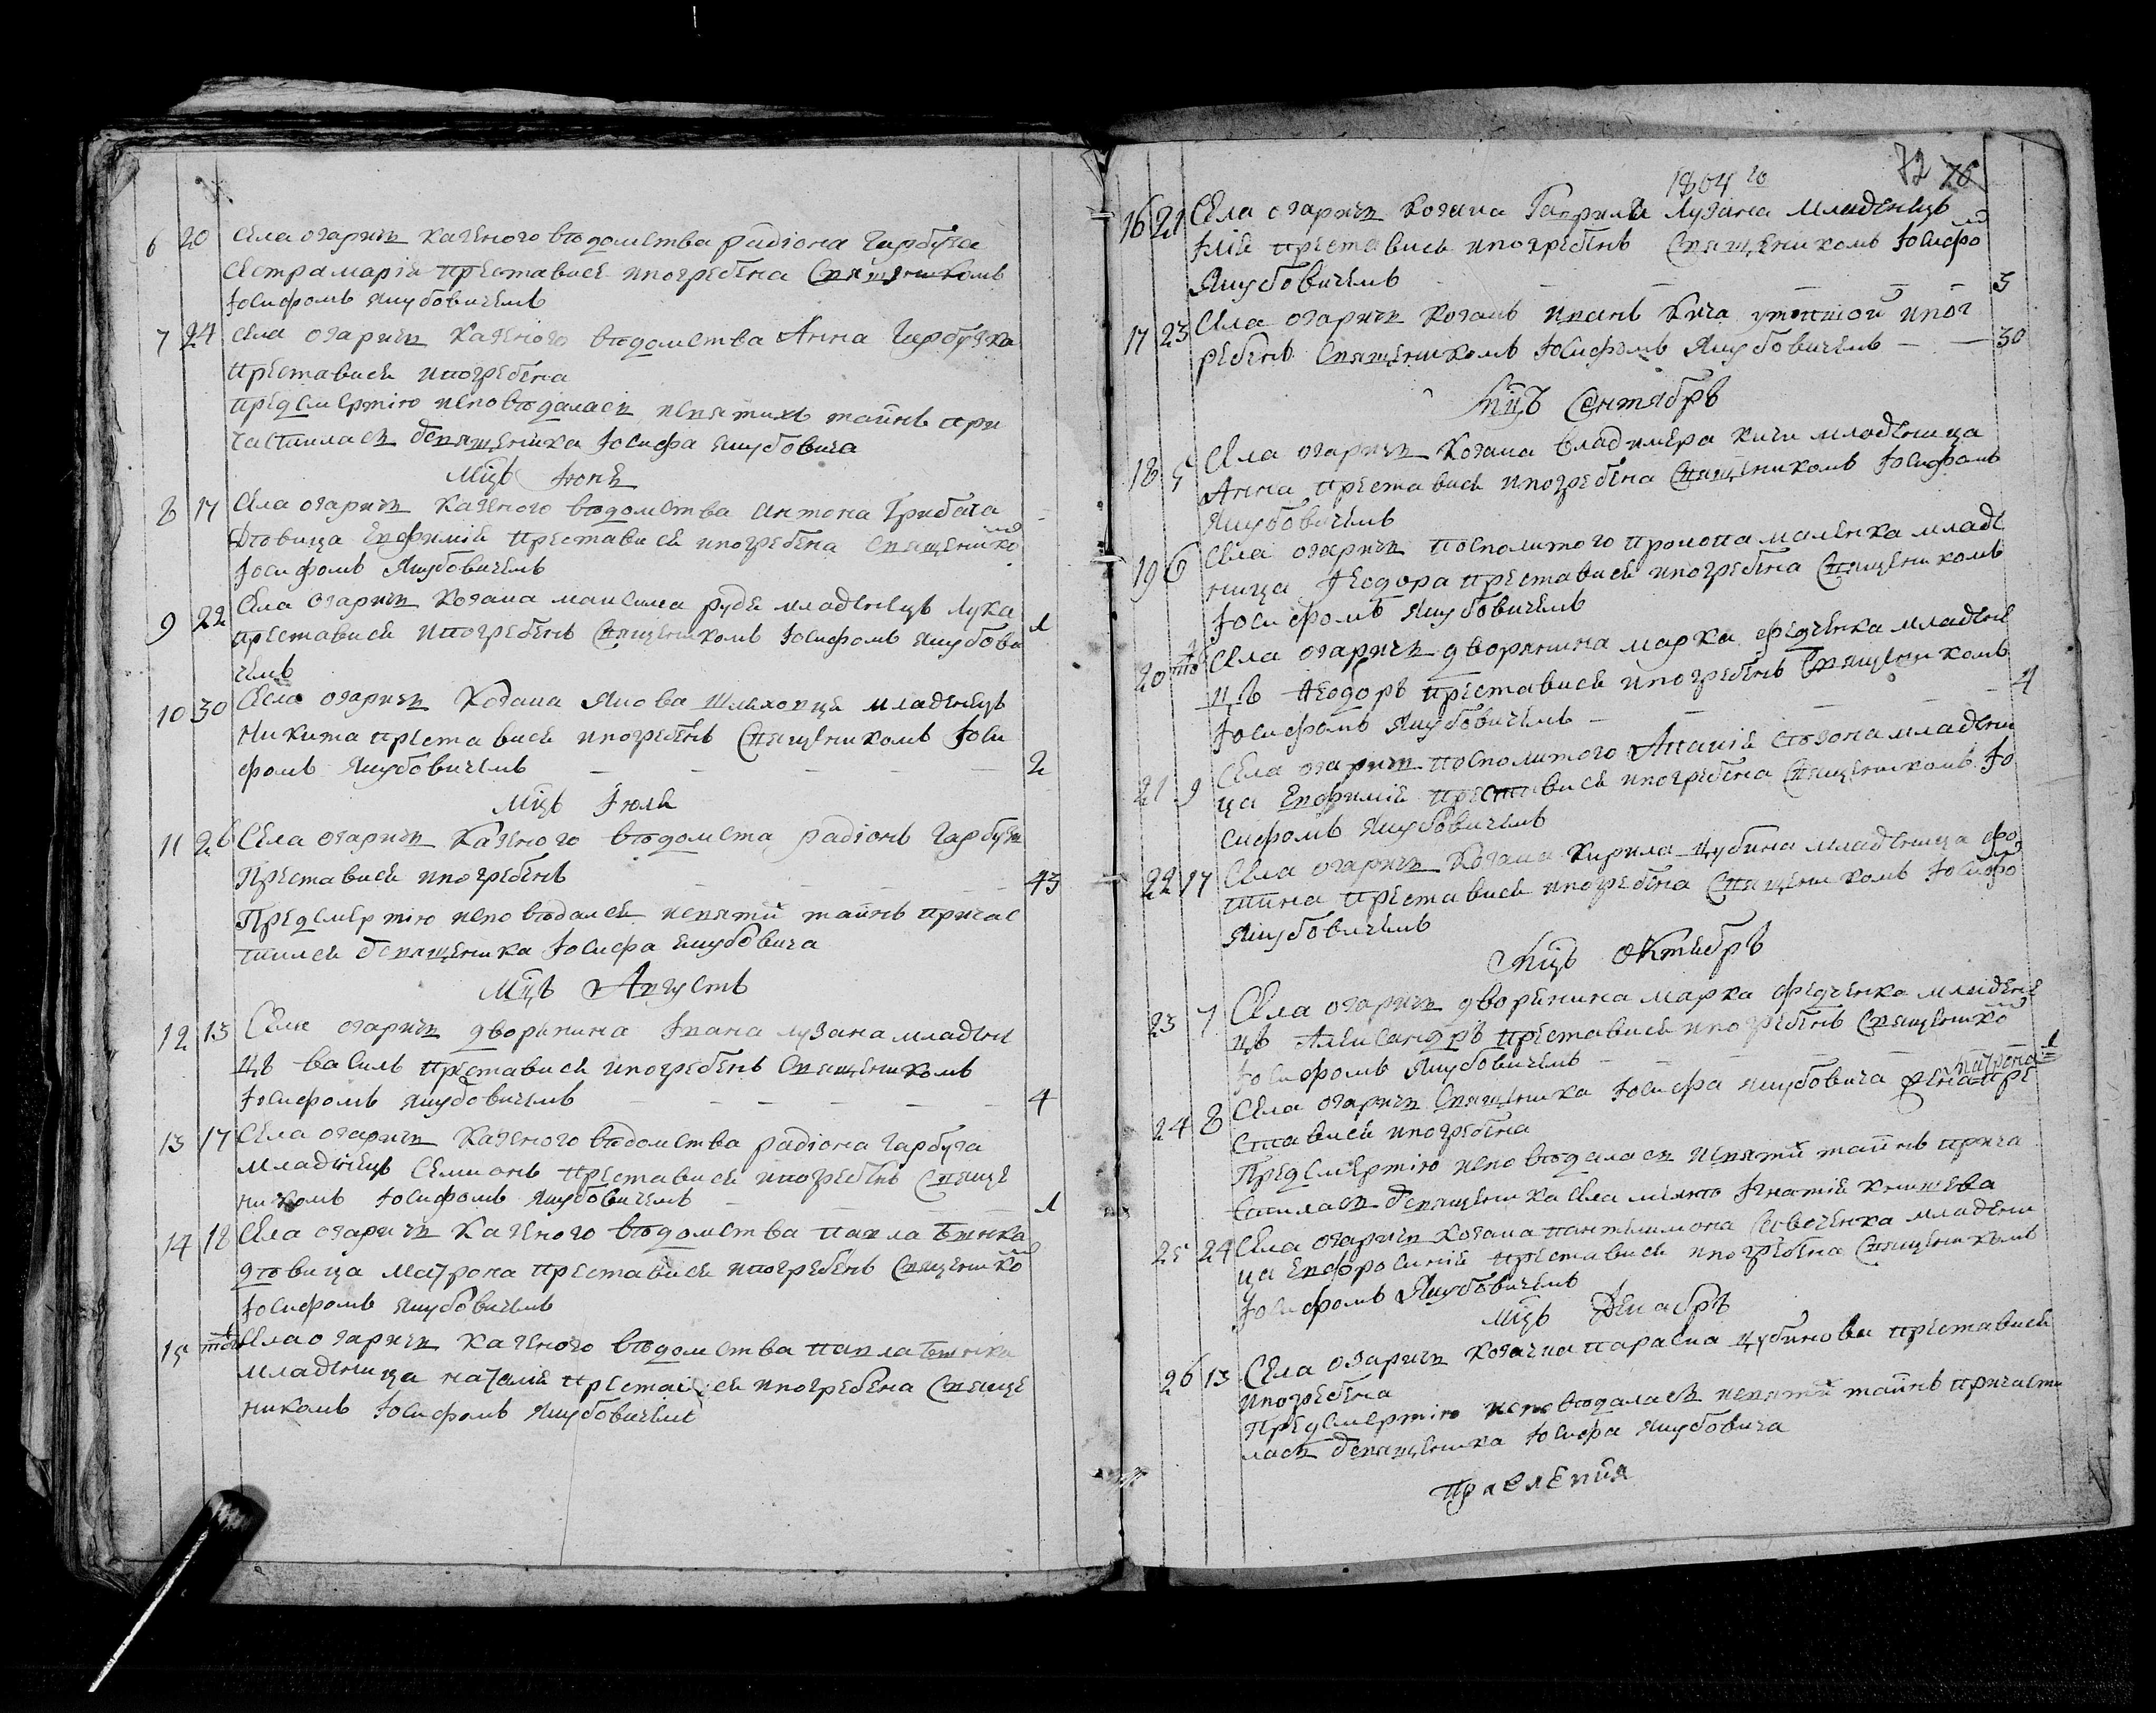 6 20 Села озаричъ казеного вѣдомства радіона гарбуза
сестра марія преставися и погребена священикомъ
Іосифомъ Якубовичемъ
7 24 Села озаричъ казеного вѣдомства Анна гарбузка
преставися и погребена
предсмертію исповѣдалася и святихъ тайнъ при
частилася ѿ священика Іосифа Якубовича
Мцъ Іюнь
8 17 Села озаричъ казеного вѣдомства антона Грибача
Дѣвица Евфимія преставися и погребена священико
Іосифомъ Якубовичемъ
9 22 Села озаричъ козака максима руде младенецъ лука
преставися и погребенъ священикомъ Іосифомъ Якубови 1
чемъ
10 30 Села озаричъ козака Якова младенецъ
Никита преставися и погребенъ священикомъ Іоси
фомъ Якубовичемъ — — — — 2
Мцъ Іюля
11 26 Села озаричъ казеного вѣдомста радіонъ гарбузъ
Преставися и погребенъ — — — — 43
Предсмертію исповѣдался и святій тайнъ причас
тился ѿ священика Іосифа Якубовича
Мцъ Августъ
12 13 Села озаричъ дворянина Івана лузана младене
цъ василъ преставися и погребенъ священикомъ
Іосифомъ Якубовичемъ — — — — 4
13 17 Села озаричъ казеного вѣдомства радіона гарбуза
младенецъ Семионъ преставися и погребенъ свяще
никомъ Іосифомъ Якубовичемъ — — — 1
14 18 Села озаричъ казеного вѣдомства павла
дѣвица Маѳрона преставися и погребенъ священико
Іосифомъ Якубовичемъ
15 тог Села озаричъ казеного вѣдомства павла
младеница наѳалія преставися и погребена свяще
никомъ Іосифомъ Якубовичемъ
1804 го 72 76
16 21 Села озаричъ козака Гаврила лузана младенецъ
Ілія преставися и погребенъ священикомъ Іосифом
Якубовичемъ — — — — — 3
17 23 Села озаричъ козакъ иванъ кича и пог
ребенъ священикомъ Іосифомъ Якубовичемъ — — 30
Мцъ Сентябръ
18 5 Села озаричъ козака владимера кичи младеница
Анна преставися и погребена священикомъ Іосифомъ
Якубовичемъ
19 6 Села озаричъ посполитого прокопа маленка младе
ница Ѳеодора преставися и погребена священикомъ
Іосифомъ Якубовичемъ
20 тог Села озаричъ дворянина марка федченка младене
цъ Ѳеодоръ преставися и погребенъ священикомъ
Іосифомъ Якубовичемъ — — — — 4
21 9 Села озаричъ посполитого младени
ца Евфимія преставися и погребена священикомъ Іо
сифомъ Якубовичемъ
22 17 Села озаричъ козака Кирила цубина младеница фо
тина преставися и погребена священикомъ Іосифом
Якубовичемъ
Мцъ Октябръ
23 7 Села озаричъ дворянина марка федченка младене
цъ Александръ преставися и погребенъ священико
Іосифомъ Якубовичемъ — — — — — 1
24 8 Села озаричъ священика Іосифа Якубовича жена маѳрона пре
ставися и погребена
Предсмертію исповѣдалася и святій тайнъ прича
стилася ѿ священика села Ігнатія
25 24 Села озаричъ козака пантелимона младени
ца Евфросинія преставися и погребена священикомъ
Іосифомъ Якубовичемъ
Мцъ Декабръ
26 13 Села озаричъ козачка параска цубинова преставися
и погребена
Предсмертію исповѣдалася и святій тайнъ причасти
лася ѿ священика Іосифа Якубовича
правленія